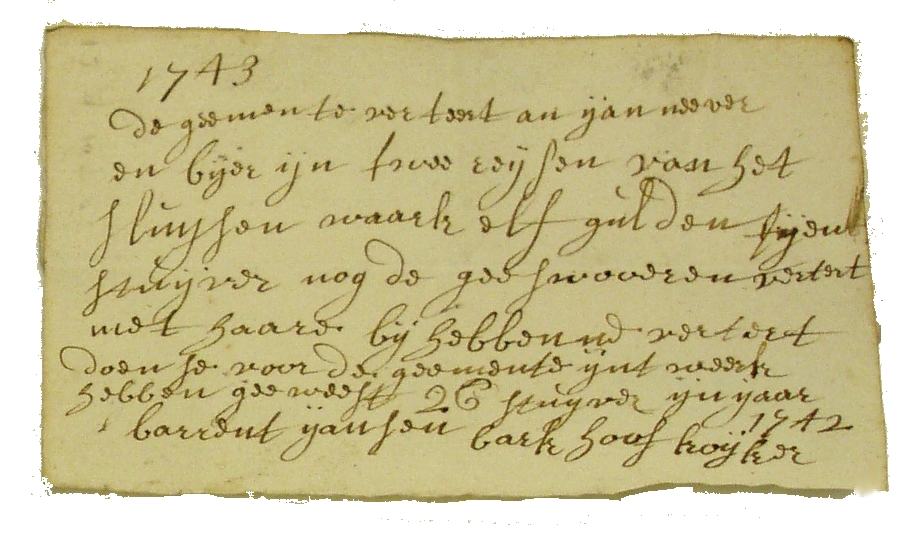 1743
de geemente verteert an yan neever
en byer yn twee reysen van het
sluysen waark elf gulden tyen
stuyver nog de geeswooeren vertert
met haare by hebbende vertert
doen se voor de geemente ynt weerk
hebben gee weest 26 stuyver yn yaar
1742
barrent yansen bark hoof koyker